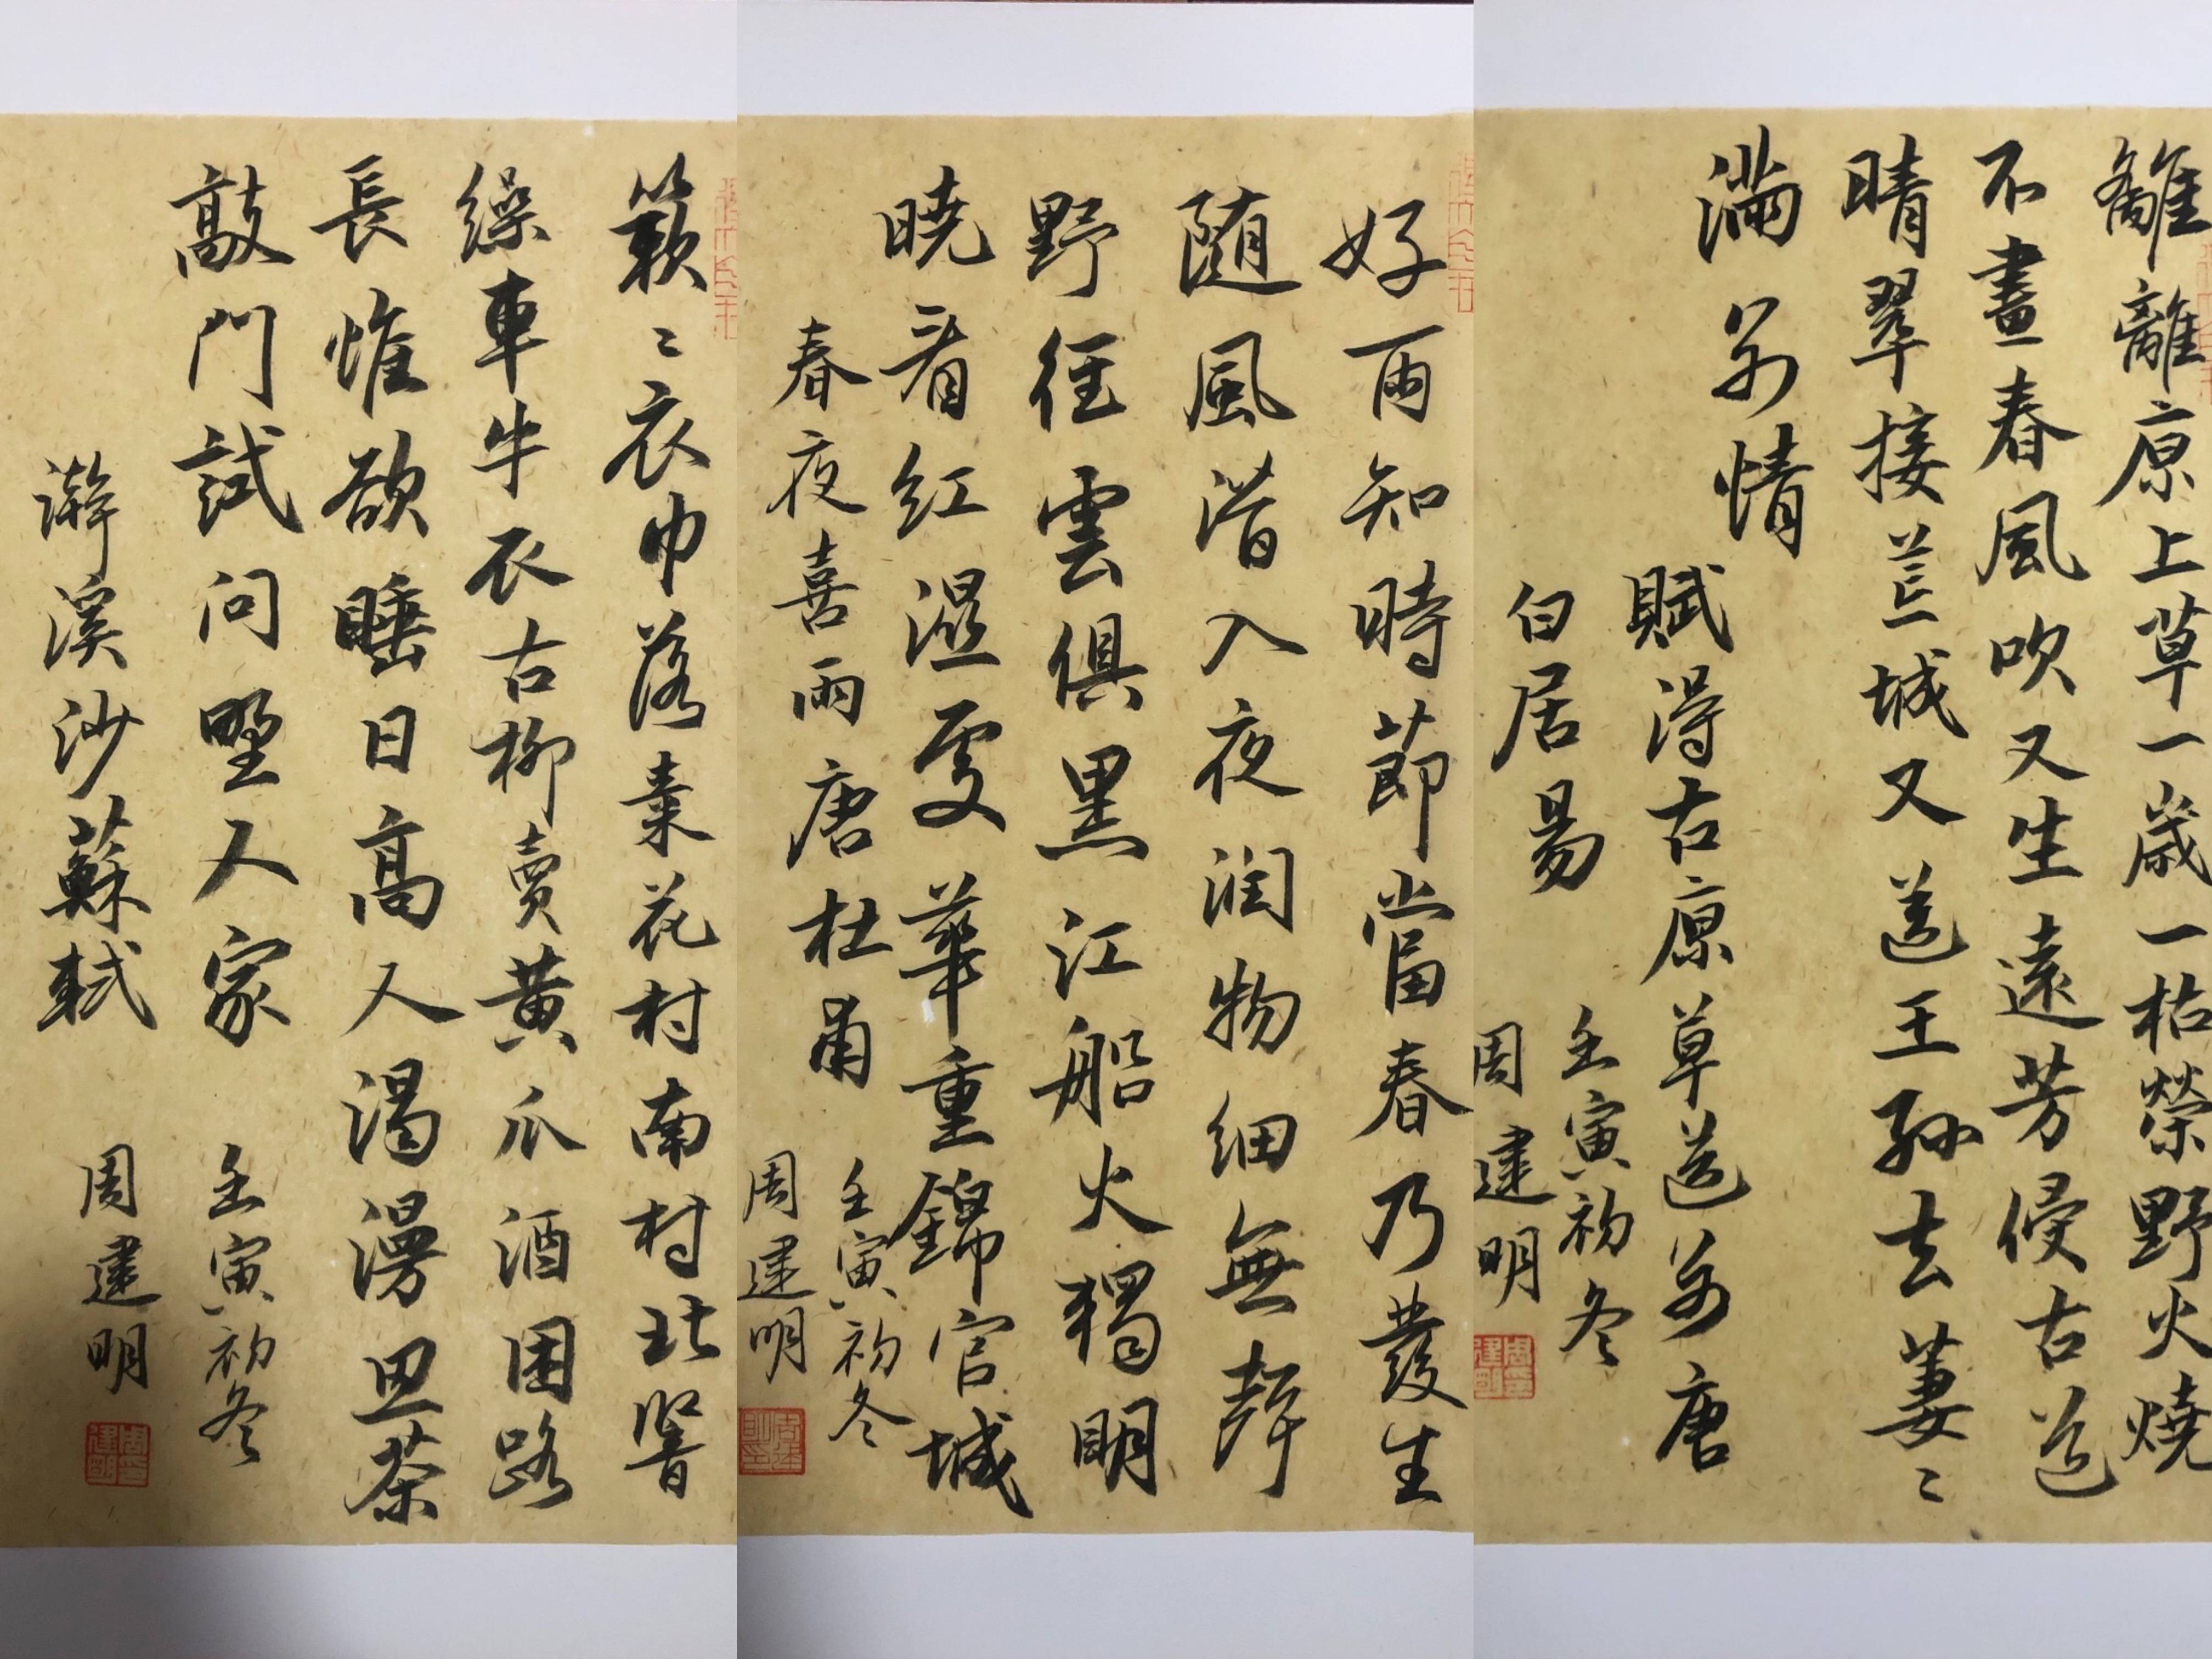 離離原上草一歲一枯榮野火燒
不盡春風吹又生遠芳侵古道
晴翠接荒城又送王孫去萋〻
滿别情
賦得古原草送别唐
白居易
壬寅初冬
周建明
好雨知時節當春乃發生
随風潜入夜润物细無聲
野徑雲俱黑江船火獨明
曉看红濕處華重錦官城
春夜喜雨唐杜甫
壬寅初冬
周建明
簌〻衣巾落棗花村南村北響
繰車牛衣古柳賣黄瓜酒困路
長惟欲睡日高人渴漫思茶
敲門試問野人家
澣溪沙蘇軾
壬寅初冬
周建明